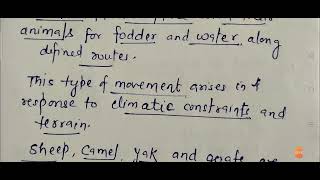 animals for fodder and water along
defined routes.
This type of movement arises in
response to climatic constraints and
terrain.
Sheep, Camel, yak and goats are